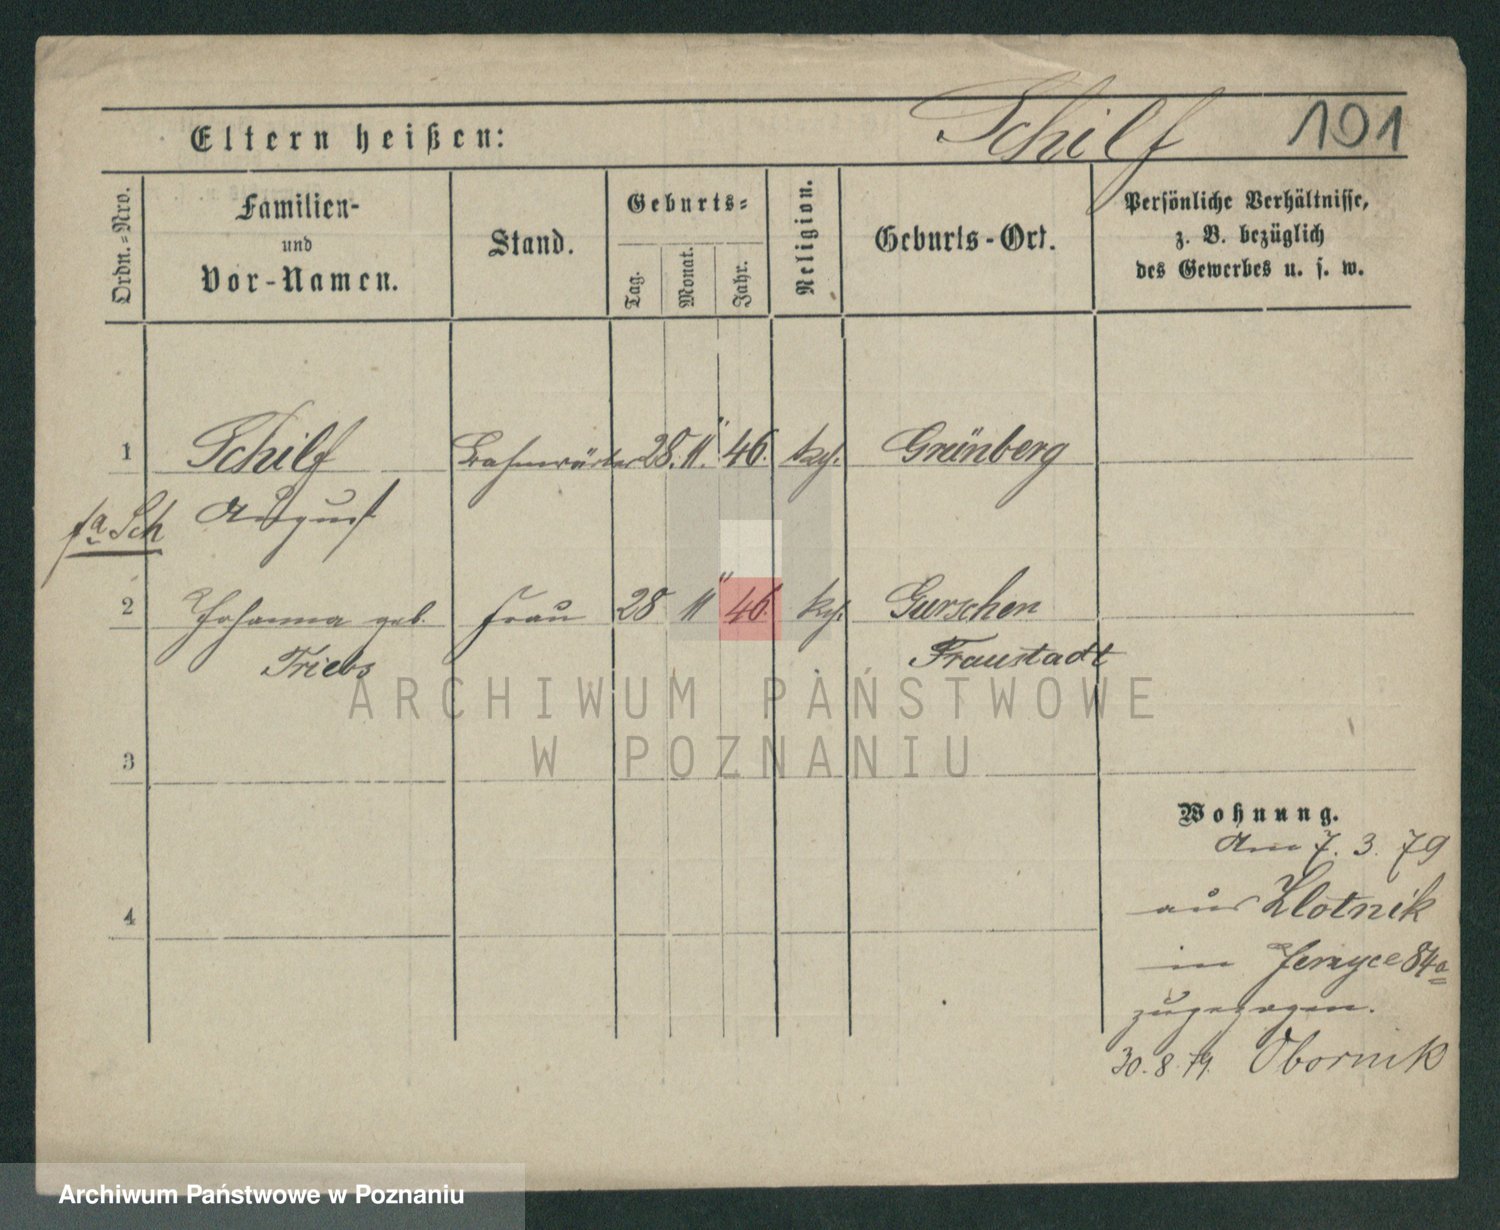 Eltern heißen:
Schilf
101
Ordn.-Nro.
Familien-
und
Vor-Namen.
Stand.
Geburts-
Tag.
Monat.
Jahr.
Religion.
Geburts-Ort.
Persönliche Verhältnisse,
z. B. bezüglich
des Gewerbes u. s. w.
1 Schilf Bahnwärter 28. 11. 46. kth. Grünberg
August
fa Sch
2 Johanna geb. Frau 28 11 46. kth. Gurschen
Triebs Fraustadt
3
4
Wohnung.
Am 7. 3. 79
aus Zlotnik
in Jerzyce 84a
zugezogen.
30. 8. 79. Obornik
ARCHIWUM PAŃSTWOWE
W POZNANIU
Archiwum Państwowe w Poznaniu